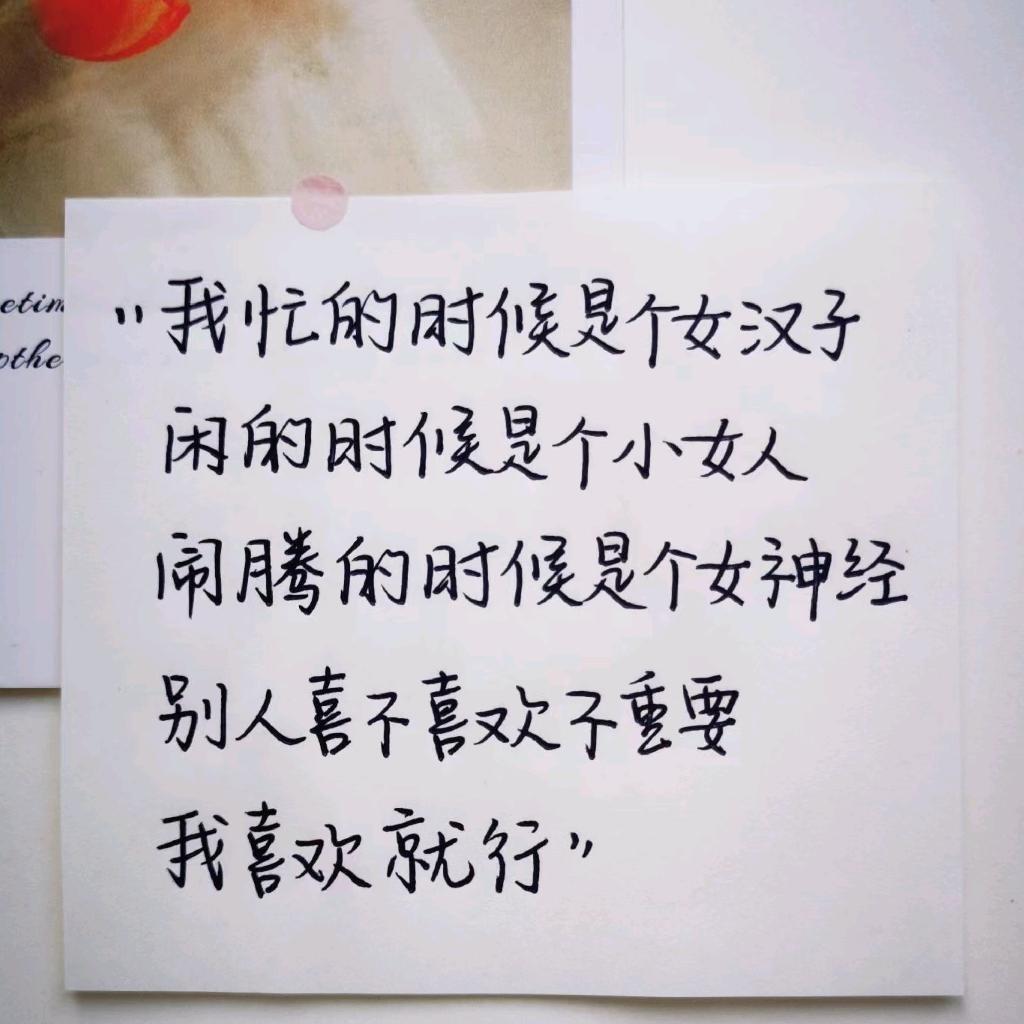 etim
othe
"我忙的时候是个女汉子
闲的时候是个小女人
闹腾的时候是个女神经
别人喜不喜欢不重要
我喜欢就行"